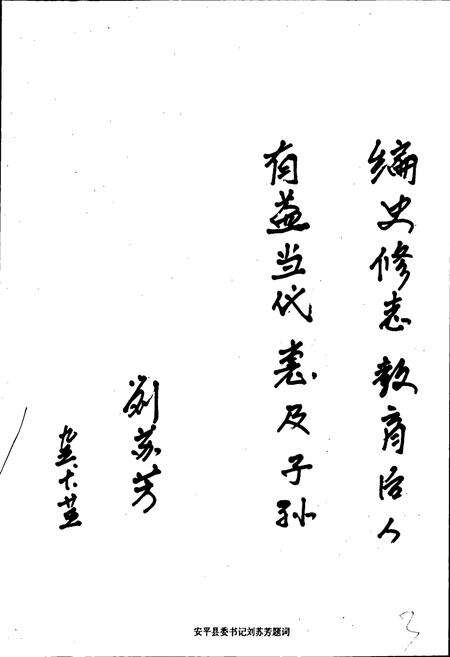 编史修志教育后人
有益当代惠及子孙
刘苏芳
九五.十.廿五
安平县委书记刘苏芳题词
3